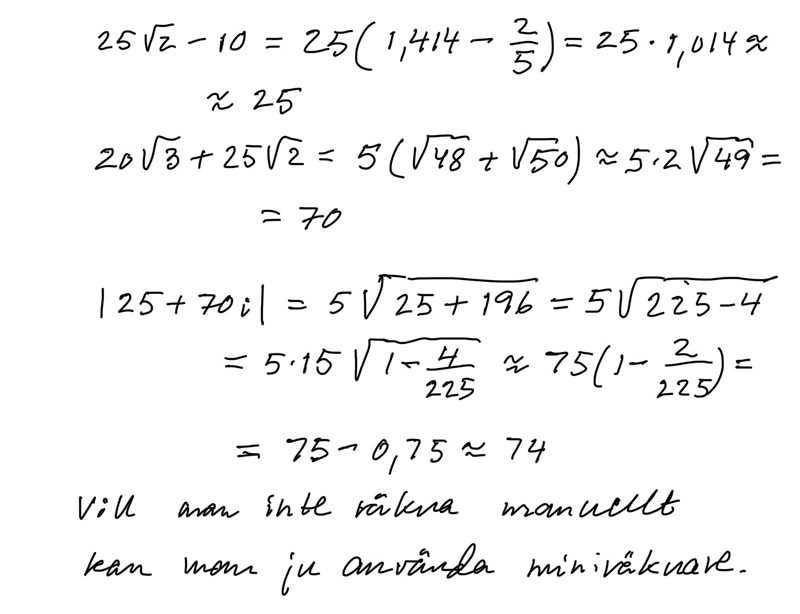 25√2 − 10 = 25(1,414 − 2/5) = 25·1,014 ≈
≈ 25
20√3 + 25√2 = 5(√48 + √50) ≈ 5·2√49 =
= 70
|25 + 70i| = 5√(25 + 196) = 5√(225 − 4)
= 5·15√(1 − 4/225) ≈ 75(1 − 2/225) =
= 75 − 0,75 ≈ 74
Vill man inte räkna manuellt
kan man ju använda miniräknare.